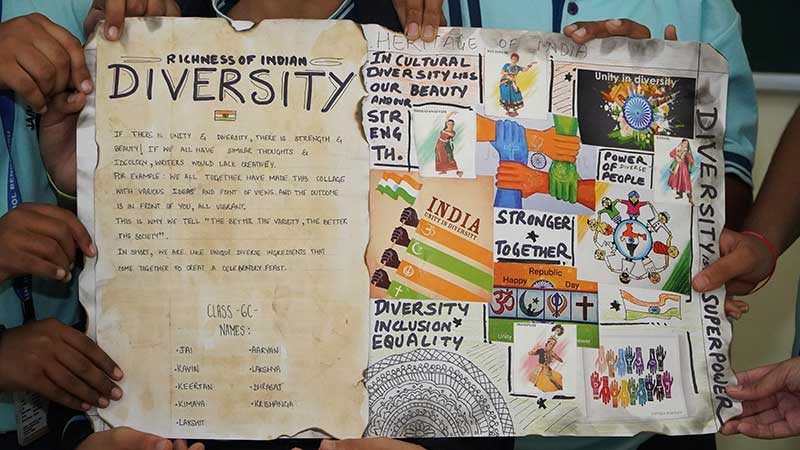 RICHNESS OF INDIAN
DIVERSITY
IF THERE IS UNITY & DIVERSITY, THERE IS STRENGTH &
BEAUTY! IF WE ALL HAVE SIMILAR THOUGHTS &
IDEOLOGY, WRITERS WOULD LACK CREATIVELY.
FOR EXAMPLE: WE ALL TOGETHER HAVE MADE THIS COLLAGE
WITH VARIOUS IDEAS AND POINT OF VIEWS. AND THE OUTCOME
IS IN FRONT OF YOU, ALL VIBRANT.
THIS IS WHY WE TELL "THE BETTER THE VARIETY, THE BETTER
THE SOCIETY".
IN SHORT, WE ARE LIKE UNIQUE DIVERSE INGREDIENTS THAT
COME TOGETHER TO CREAT A CELEBRATORY FEAST.
CLASS -GC-
NAMES:-
•JAI
•KAVIN
•KEERTAN
•KIMAYA
•LAKSHIT
•AARYAN
•LAKSHYA
•DHRASAT
•KRISHANGA
HERITAGE OF INDIA
IN CULTURAL
DIVERSITY LIES
OUR BEAUTY
AND OUR
STR
ENG
TH.
Unity in diversity
POWER OF DIVERSE
PEOPLE
INDIA
UNITY IN DIVERSITY
STRONGER
TOGETHER
Republic
Happy Day
DIVERSITY
INCLUSION
EQUALITY
DIVERSITY IS SUPERPOWER